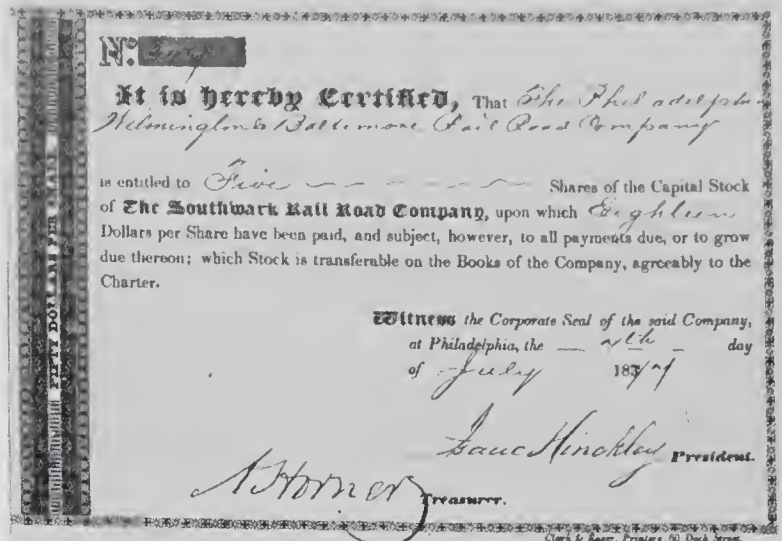 No.
It is hereby Certified, That The Philadelphia
Wilmington & Baltimore Rail Road Company
is entitled to Five Shares of the Capital Stock
of The Southwark Rail Road Company, upon which Eighteen
Dollars per Share have been paid, and subject, however, to all payments due, or to grow
due thereon; which Stock is transferable on the Books of the Company, agreeably to the
Charter.
FIFTY DOLLARS PER SHARE
Witness the Corporate Seal of the said Company,
at Philadelphia, the day
of July 183
Isaac Hinckley President.
A Horner Treasurer.
Printers, 60 Dock Street.